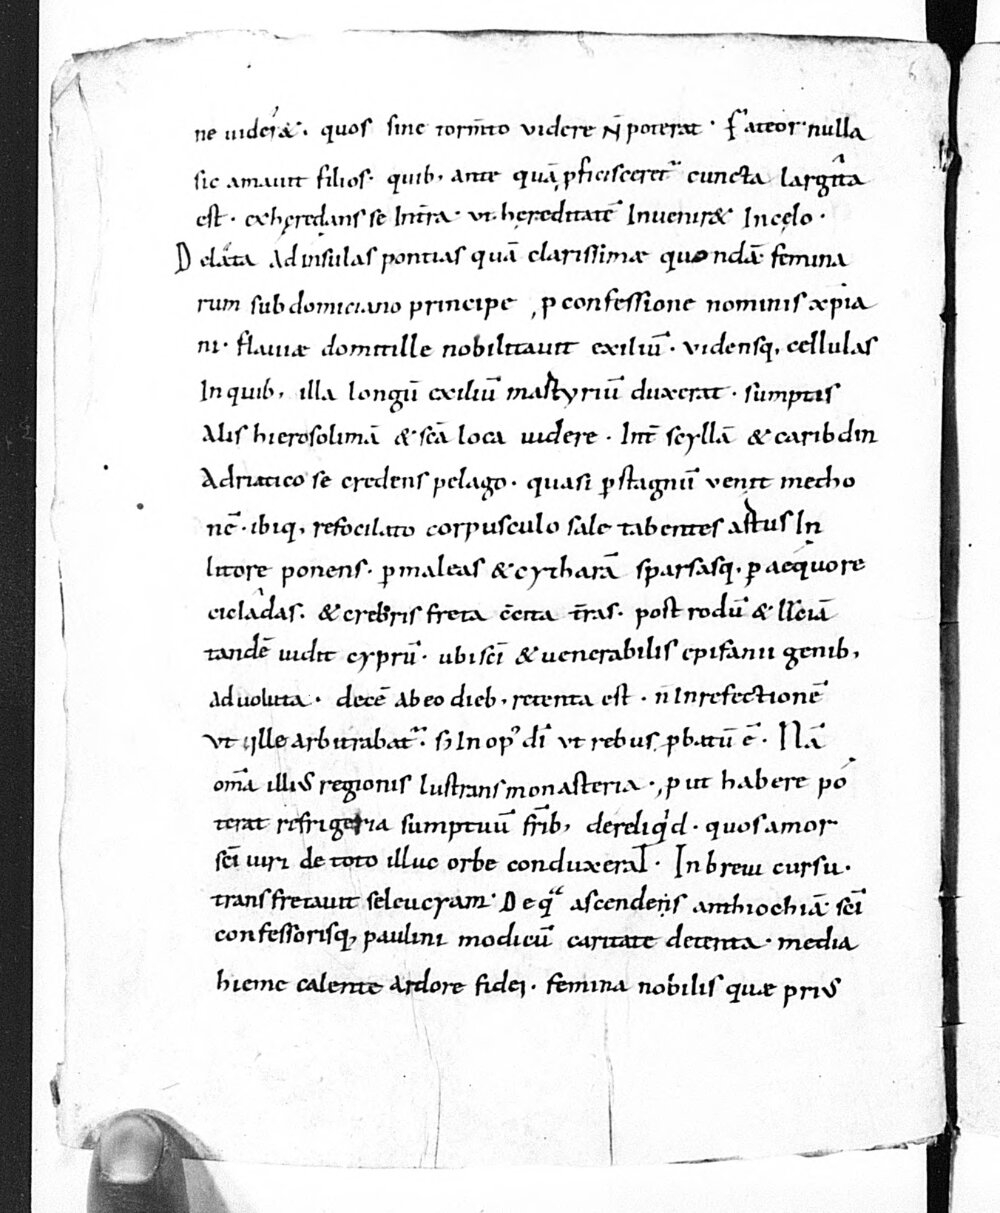 6
ne uider&. quos sine torm̅to videre n̅ poterat. fateor nulla
sic amauit filios. quib; ante quā ꝓficisceret᷑ cuncta largita
est. exhęredans se In t̅ra. vt hereditatē Inuenir& In cęlo.
Delata ad insulas pontias quā clarissimæ quondā femina
rum sub domiciano principe ꝓ confessione nominis xp̅ia
ni. flauiæ domitille nobilitauit exiliū. vidensq; cellulas
In quib; illa longū exiliū martyriū duxerat. sumptis
alis hierosolimā & sc̅a loca uidere. Int̅ scyllā & caribdin
Adriatico se credens pelago. quasi ꝑ stagnū venit metho
nē. ibiq; refocilato corpusculo sale tabentes artus In
litore ponens. ꝑ maleas & cytharā sparsasq; ꝑ aequore
cicladas. & crebris freta c̅cita t̅ras. post rodū & liciā
tandē uidit cyprū. ubi sc̅i & uenerabilis epifanii genib;
aduoluta. decē ab eo dieb; retenta est. n̅ In refectionē
vt ille arbitrabat᷑. s; In op᾽ dı̅ vt rebus ꝓbatū ē. Nā
om̅a illius regionis lustrans monasteria. ꝓut habere po
terat refrigeria sumptuū fr̅ib; dereliq̇d. quos amor
sc̅i uiri de toto illuc orbe conduxerat. In breui cursu.
transfretauit seleucyam. De qͣ ascendens anthiochiā sc̅i
confessorisq; paulini modicū caritate detenta. media
hieme calente ardore fidei. femina nobilis quæ prius